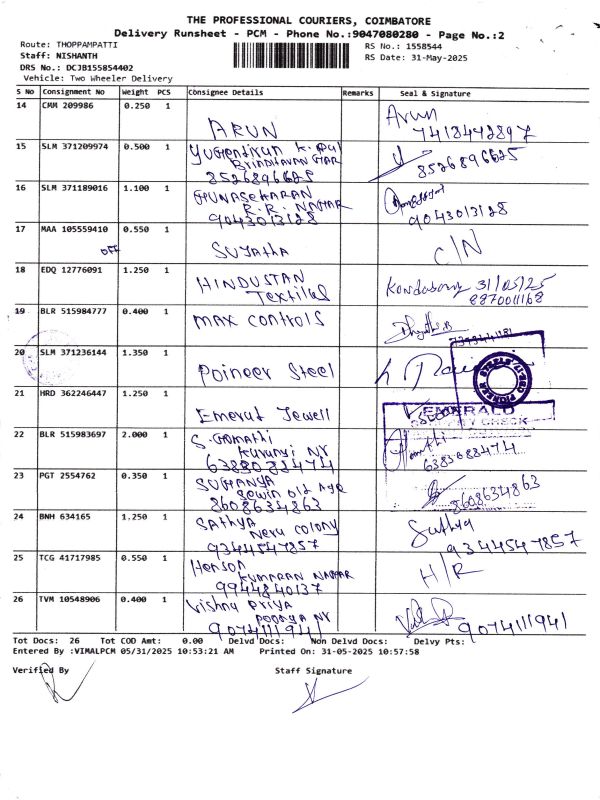 THE PROFESSIONAL COURIERS, COIMBATORE
Delivery Runsheet - PCM - Phone No.:9047080280 - Page No.:2
Route: THOPPAMPATTI
RS No.: 1558544
Staff: NISHANTH
RS Date: 31-May-2025
DRS No.: DCJB155854402
Vehicle: Two Wheeler Delivery
S No Consignment No Weight PCS Consignee Details Remarks Seal & Signature
14 CMM 209986 0.250 1 ARUN Arun
7418472897
15 SLM 371209974 0.500 1
8526896625 8526896625
16 SLM 371189016 1.100 1 GUNASEKARAN
R.R. NAGAR
9043013128 9043013128
17 MAA 105559410 0.550 1 SUJATHA C/N
OFF
18 EDQ 12776091 1.250 1 HINDUSTAN
Textiles
31/05/25
8870011168
19 BLR 515984777 0.400 1 MAX CONTROLS
20 SLM 371236144 1.350 1 Poineer Steel
21 HRD 362246447 1.250 1 Emerut Jewell
EMERALD
SECURITY CHECK
22 BLR 515983697 2.000 1 S. Gomathi
63830884474 63830884474
23 PGT 2554762 0.350 1 SUGHANYA
8608634863 8608634863
24 BNH 634165 1.250 1 SATHYA Sathya
Neru colony
9344547857 9344547857
25 TCG 41717985 0.550 1 Henson H/R
KUMARAN NAGAR
9944840137
26 TVM 10548906 0.400 1 Vishnu Priya
9074111941 9074111941
Tot Docs: 26 Tot COD Amt: 0.00 Delvd Docs: Non Delvd Docs: Delvy Pts:
Entered By :VIMALPCM 05/31/2025 10:53:21 AM Printed On: 31-05-2025 10:57:58
Verified By Staff Signature